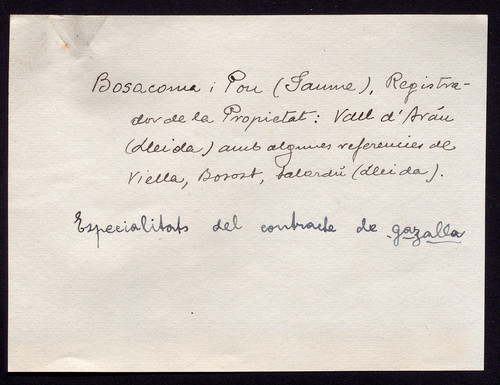 Bosacoma i Pou (Jaume), Registra-
dor de la Propietat: Vall d'Arán
(Lleida) amb algunes referencies de
Viella, Bosost, Salardú (Lleida).
Especialitats del contracte de gazalla